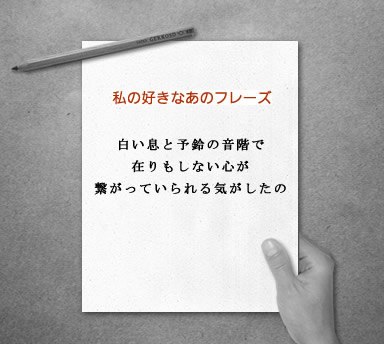 私の好きなあのフレーズ
白い息と予鈴の音階で
在りもしない心が
繋がっていられる気がしたの